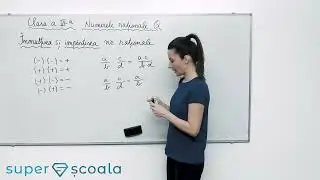 Clasa a VI-a Numerele raționale Q
Înmulțirea și împărțirea nr. raționale
(-)·(-) = +
(+)·(+) = +
(+)·(-) = -
(-)·(+) = -
a/b · c/d = a·c/b·d
a/b : c/d = a/b
super școala